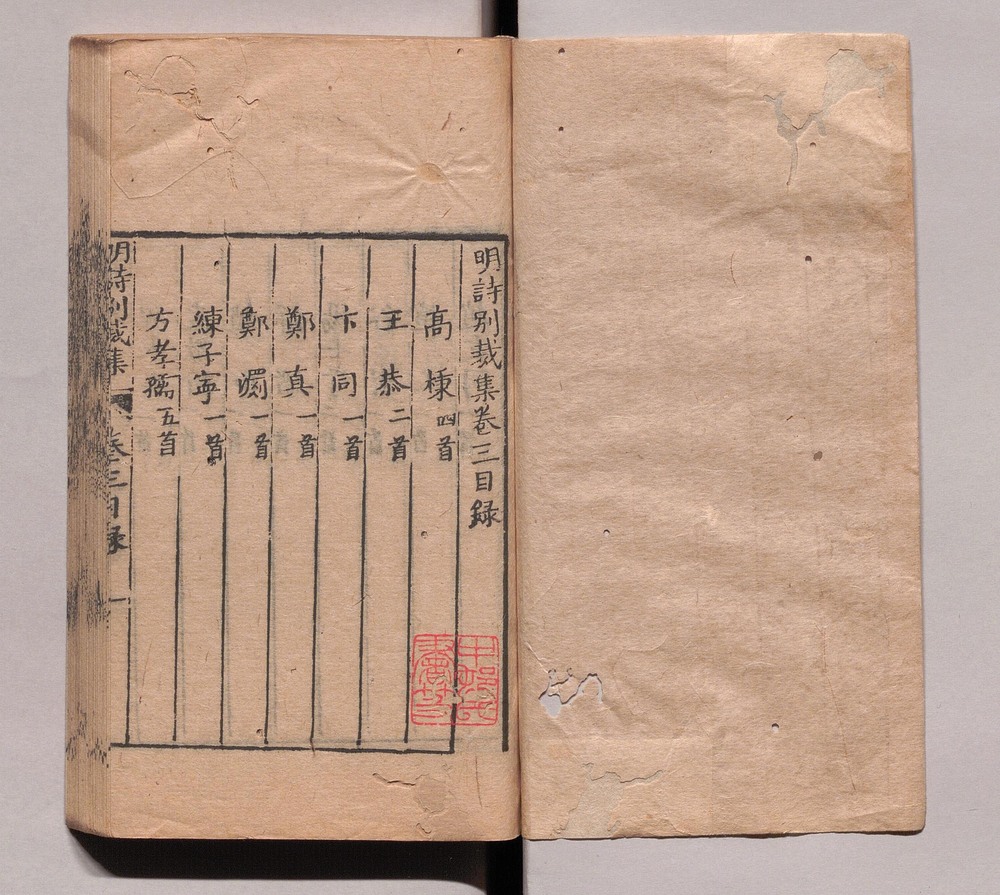 明詩別裁集卷三目錄
高棅四首
王恭二首
卞同一首
鄭真一首
鄭潛一首
練子寧一首
方孝孺五首
明詩別裁集 卷三目録 一